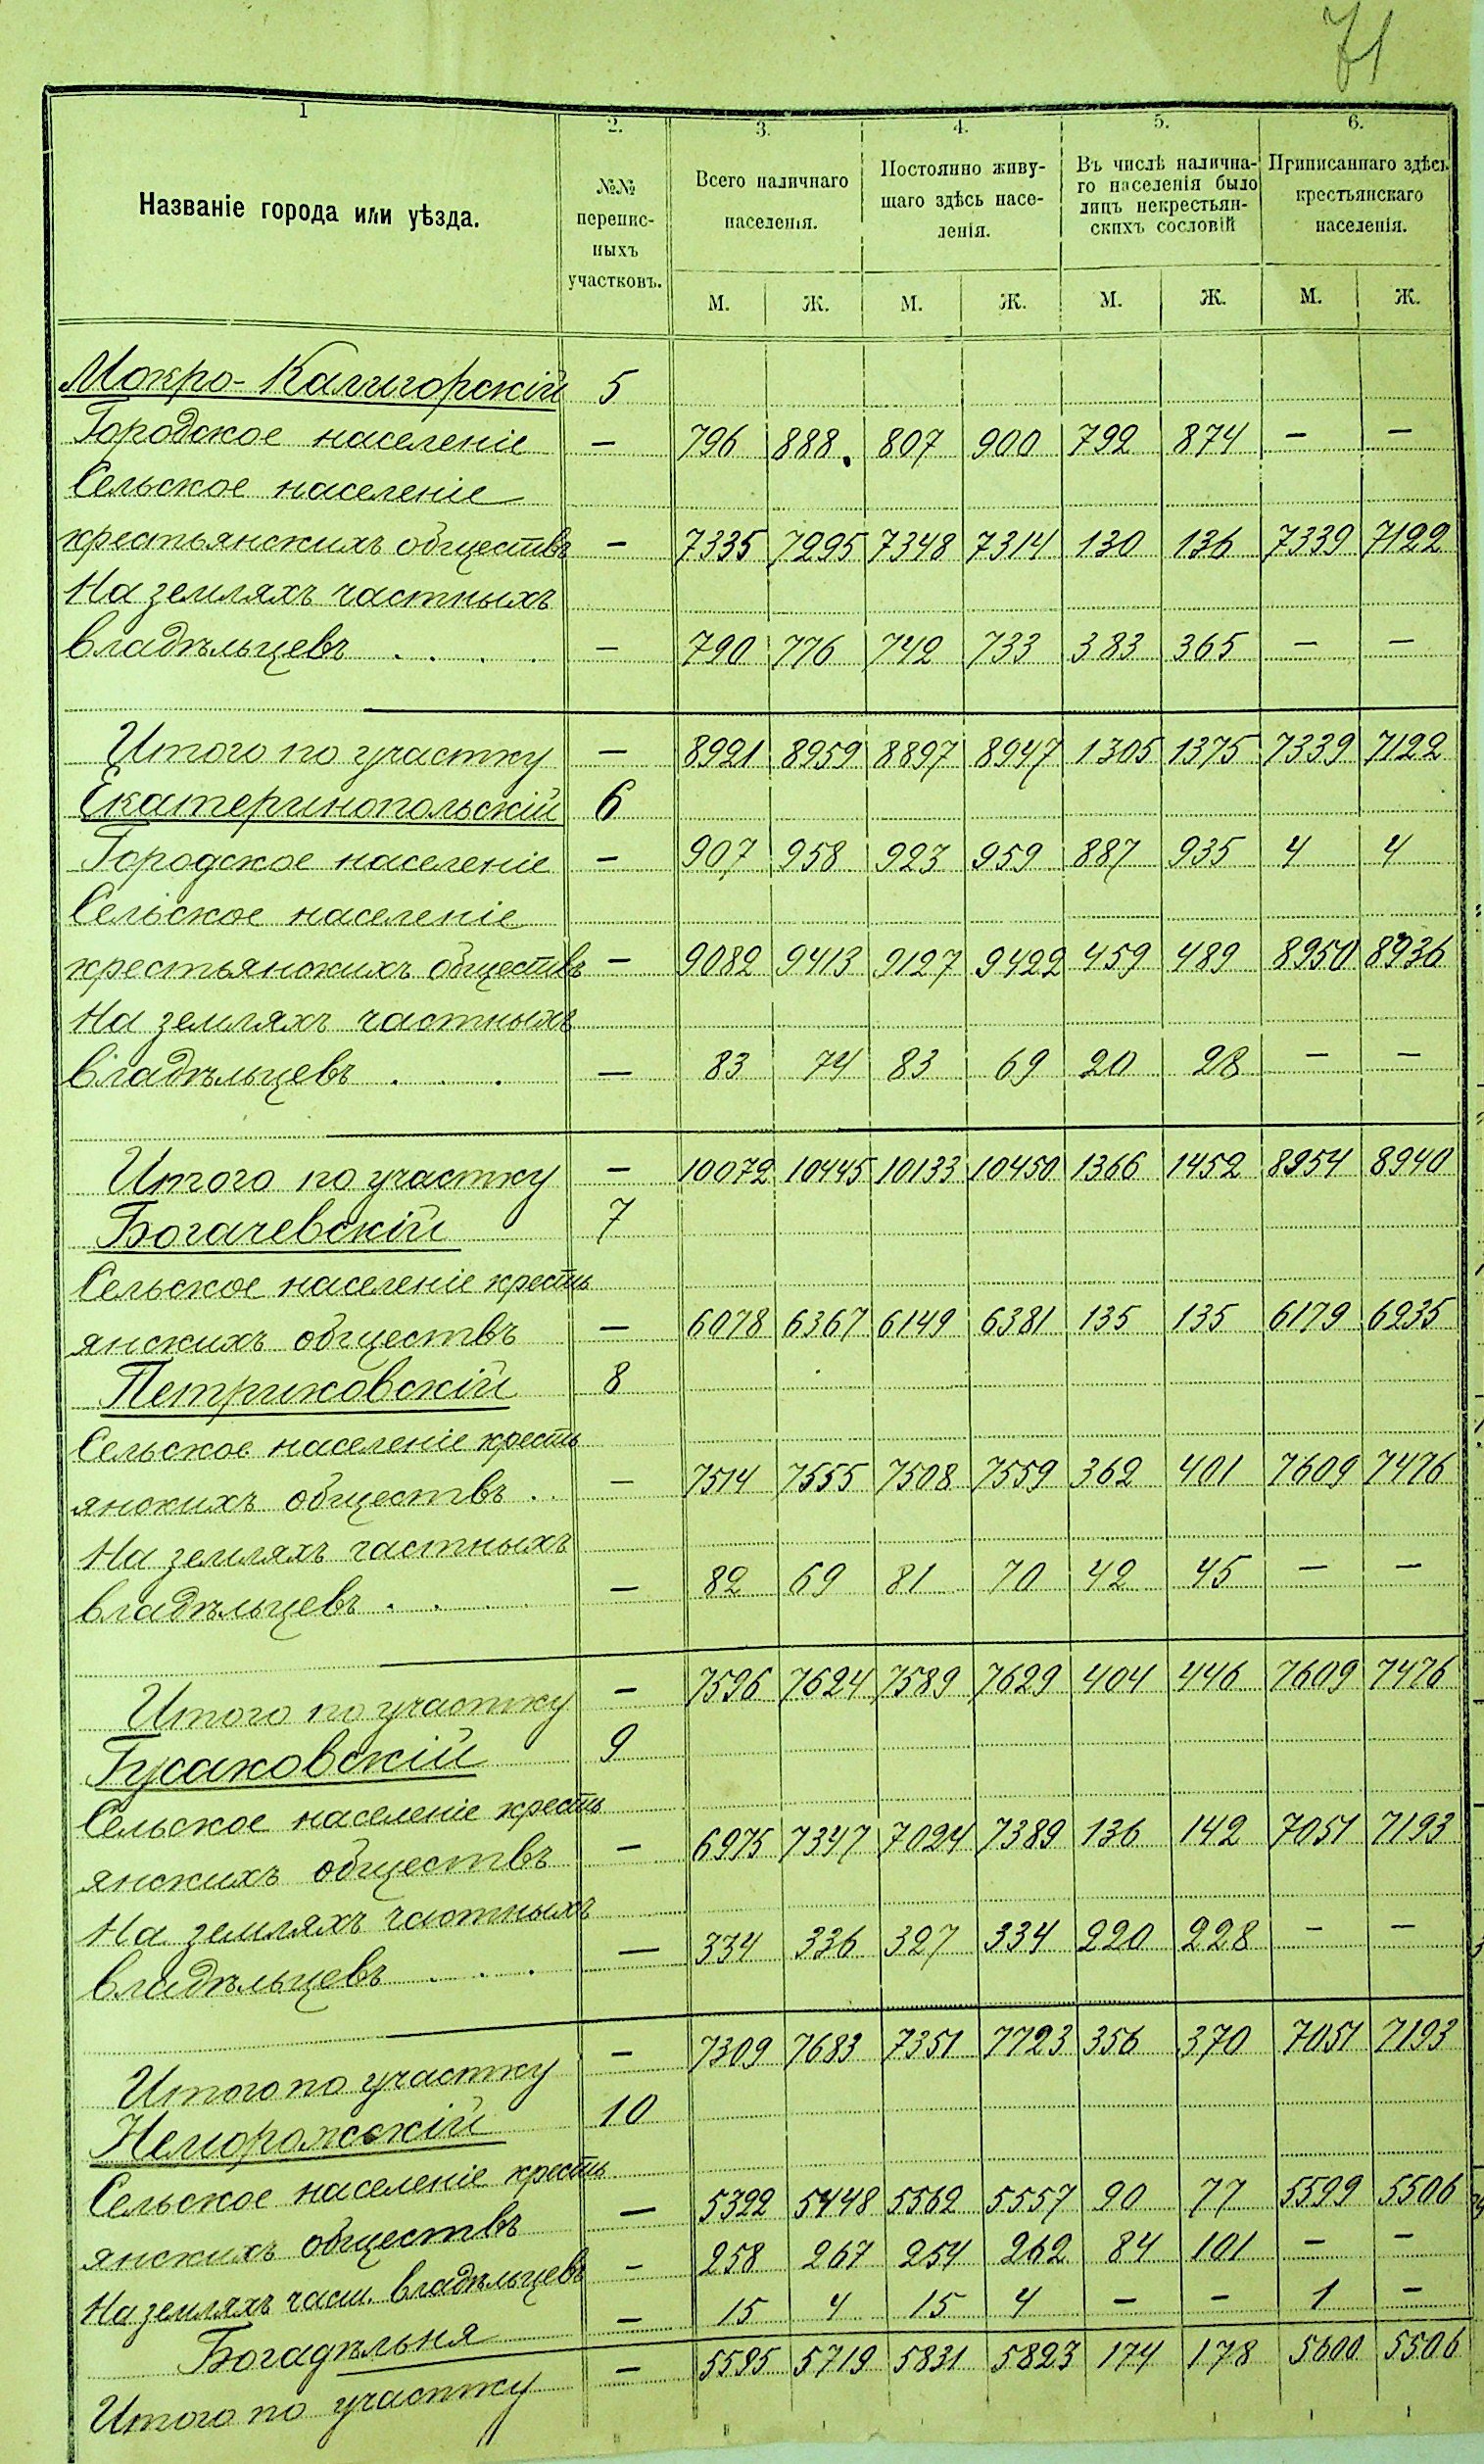 71
1 2. 3. 4. 5. 6.
Названіе города или уѣзда.
№№ перепис-
ныхъ
участковъ.
Всего наличнаго
населенія.
Постоянно живу-
щаго здѣсь насе-
ленія.
Въ числѣ налична-
го населенія было
лицъ некрестьян-
скихъ сословій
Приписаннаго здѣсь
крестьянскаго
населенія.
М. Ж. М. Ж. М. Ж. М. Ж.
Мокро-Калигорскій 5
Городское населеніе — 796 888. 807 900 792 874 — —
Сельское населеніе
крестьянскихъ обществъ — 7335 7295 7348 7314 130 136 7339 7122
На земляхъ частныхъ
владѣльцевъ . . . . — 790 776 742 733 383 365 — —
Итого по участку — 8921 8959 8897 8947 1305 1375 7339 7122
Екатеринопольскій 6
Городское населеніе — 907 958 923 959 887 935 4 4
Сельское населеніе
крестьянскихъ обществъ — 9082 9413 9127 9422 459 489 8950 8936
На земляхъ частныхъ
владѣльцевъ . . . — 83 74 83 69 20 28 — —
Итого по участку — 10072 10445 10133 10450 1366 1452 8954 8940
Богачевскій 7
Сельское населеніе кресть
янскихъ обществъ — 6078 6367 6149 6381 135 135 6179 6235
Петриковскій 8
Сельское населеніе кресть
янскихъ обществъ . . — 7514 7555 7508 7559 362 401 7609 7476
На земляхъ частныхъ
владѣльцевъ . . . — 82 69 81 70 42 45 — —
Итого по участку — 7596 7624 7589 7629 404 446 7609 7476
Гусаковскій 9
Сельское населеніе кресть
янскихъ обществъ — 6975 7347 7024 7389 136 142 7051 7193
На земляхъ частныхъ
владѣльцевъ . . . — 334 336 327 334 220 228 — —
Итого по участку — 7309 7683 7351 7723 356 370 7051 7193
Неморожскій 10
Сельское населеніе кресть
янскихъ обществъ — 5322 5448 5562 5557 90 77 5599 5506
На земляхъ част. владѣльцевъ — 258 267 254 262 84 101 — —
Богадѣльня — 15 4 15 4 — — 1 —
Итого по участку — 5595 5719 5831 5823 174 178 5600 5506